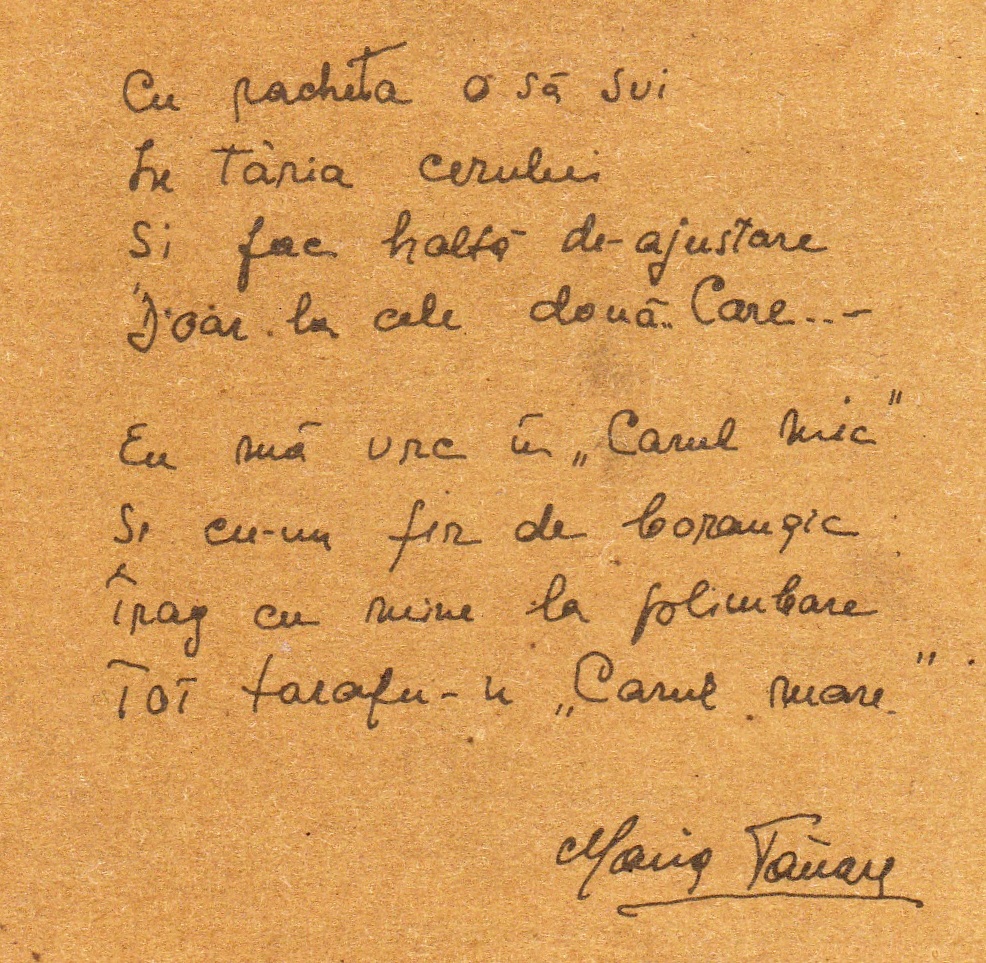 Cu racheta o să sui
In tăria cerului
Si fac haltă de-ajustare
Doar la cele două Care...-
Eu mă urc în „Carul mic"
Si cu-un fir de borangic
Trag cu mine la plimbare
Tot tarafu-n „Carul mare".
Maria Tănase